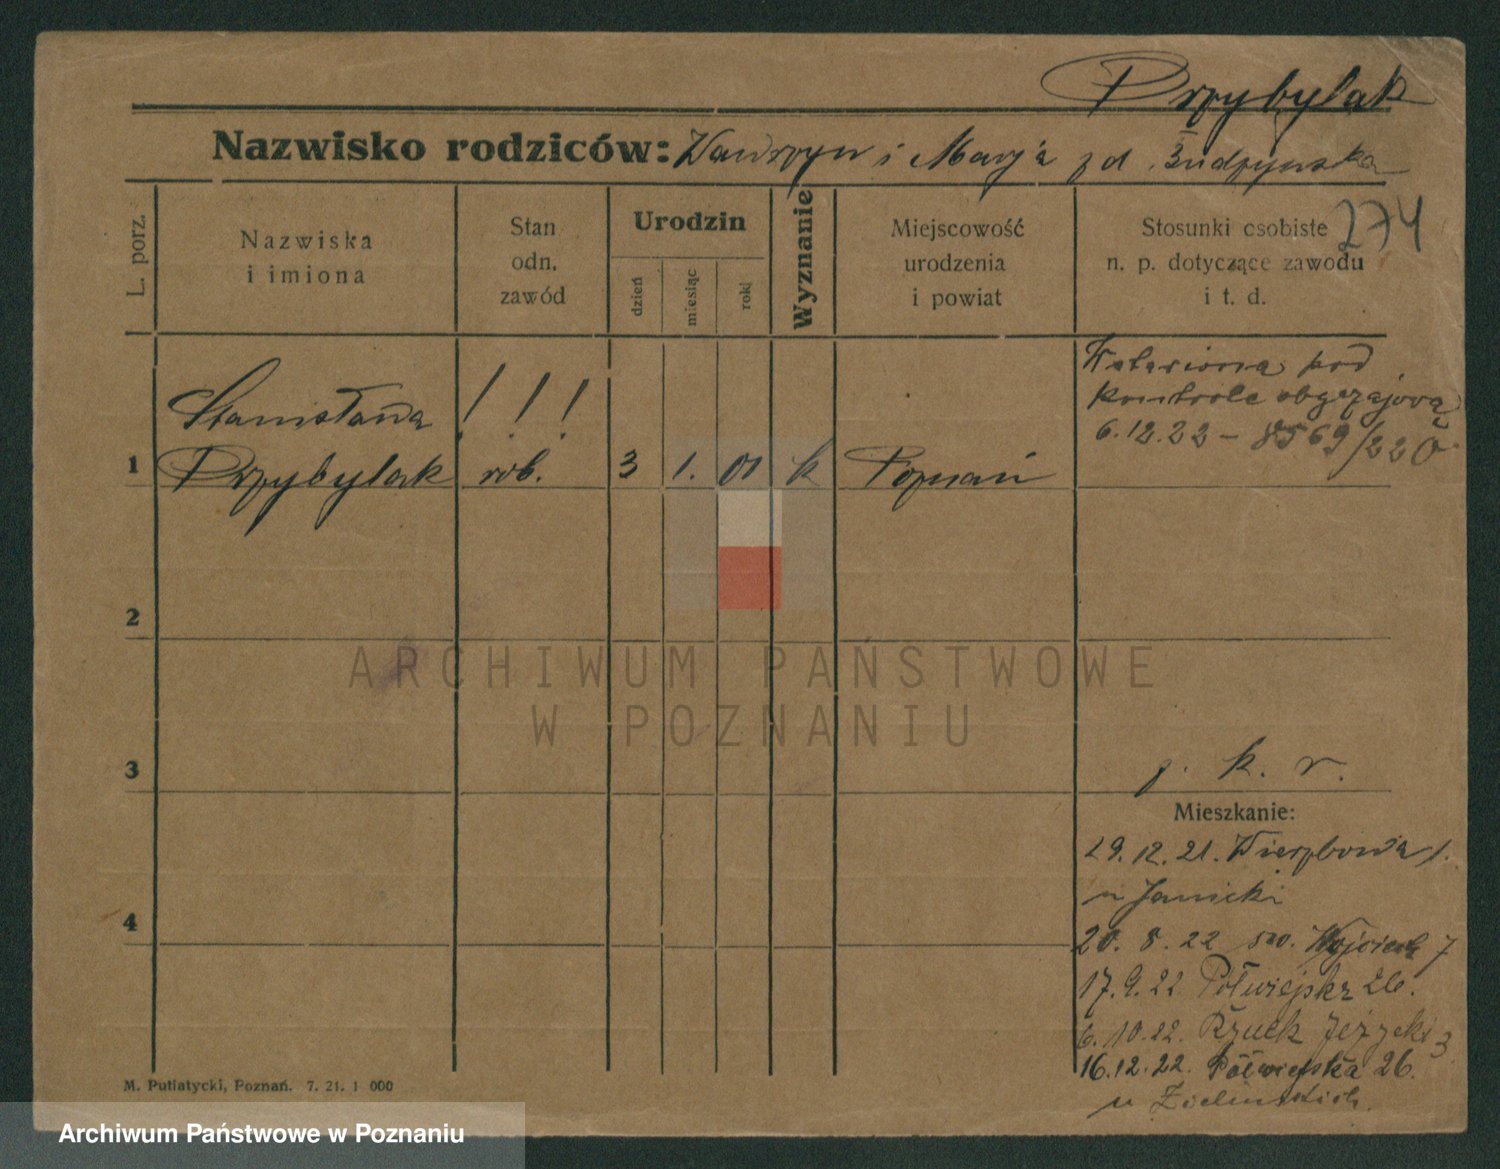 Przybylak
Nazwisko rodziców: Wawrzyn i Marja z d. Budzyńska
274
L. porz.
Nazwiska
i imiona
Stan
odn.
zawód
Urodzin
dzień
miesiąc
rok
Wyznanie
Miejscowość
urodzenia
i powiat
Stosunki osobiste
n. p. dotyczące zawodu
i t. d.
Stanisława ! ! !
1 Przybylak rob. 3 1. 01 k Poznań
pod
kontrolę obyczajową
6.12.22 – 8569/22
2
3
4
ARCHIWUM PAŃSTWOWE
W POZNANIU
k. r.
Mieszkanie:
29.12.21. Wierzbowa 1.
u Janicki
20. 8. 22 św. Wojciech 7
17.9.22 Półwiejska 26.
6.10.22. Rynek Jeżycki 3
16.12.22. Półwiejska 26.
u Zielińskich
M. Putiatycki, Poznań. 7. 21. 1 000
Archiwum Państwowe w Poznaniu